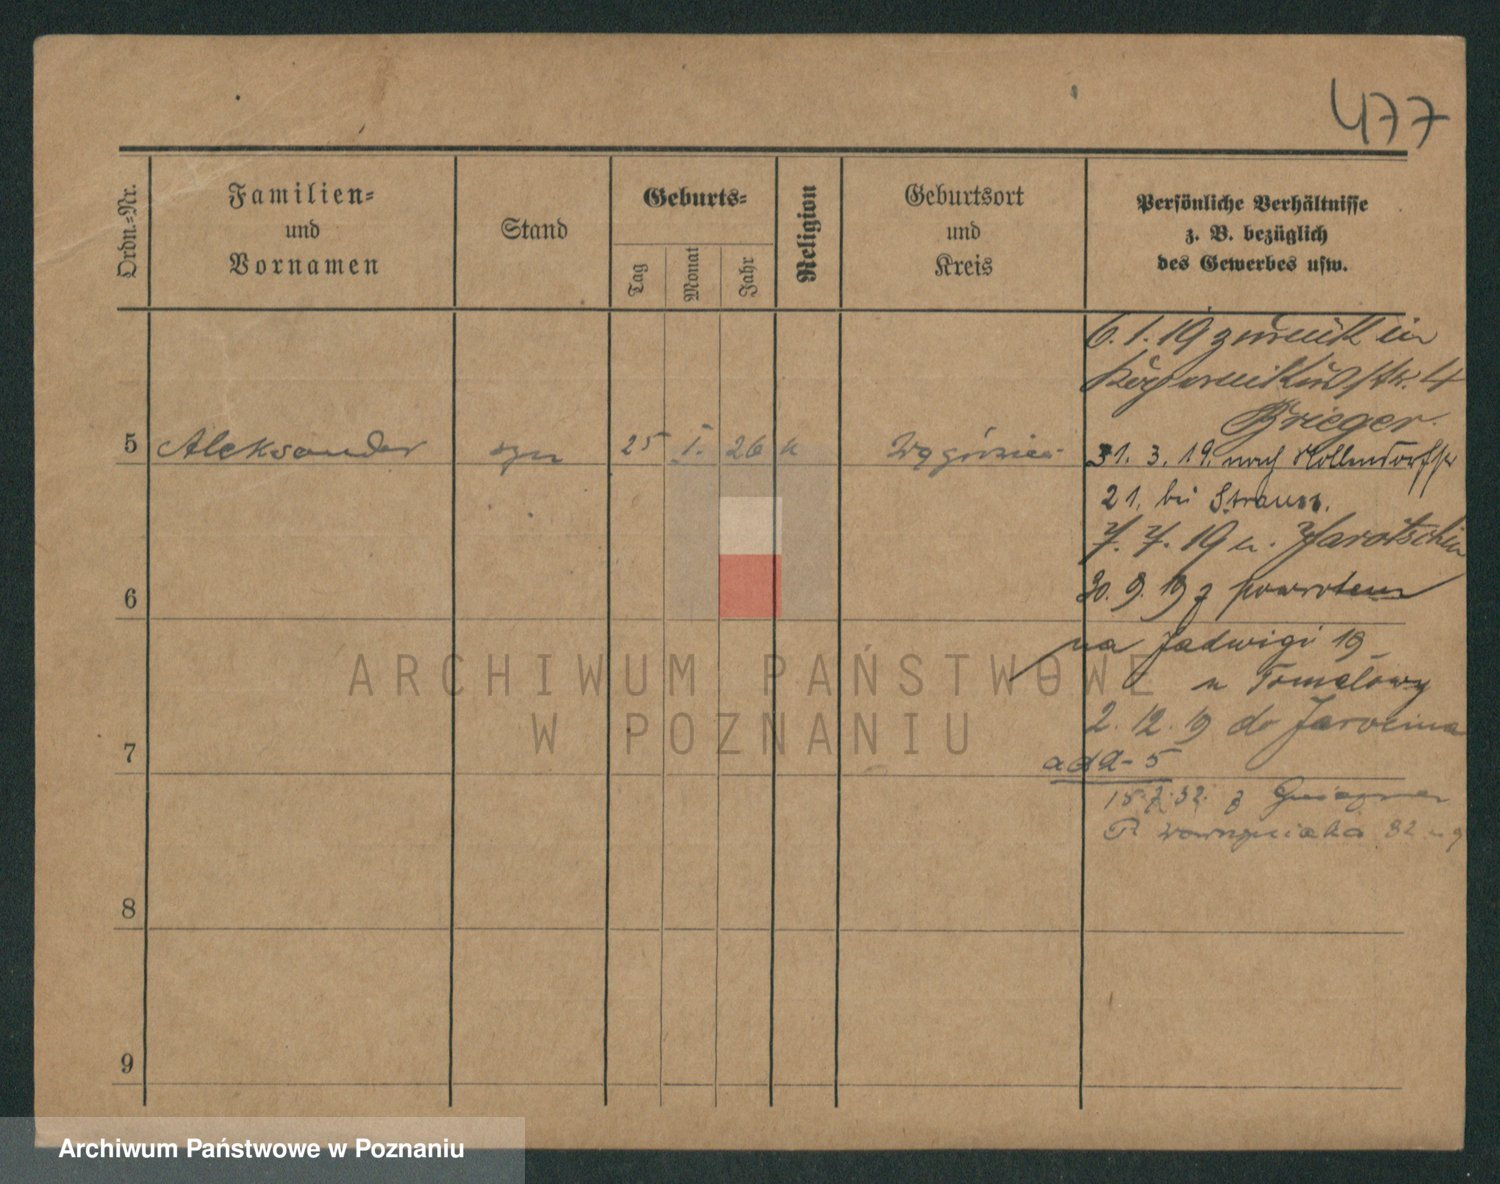 477
Ordn.=Nr.
Familien=
und
Vornamen
Stand
Geburts=
Tag
Monat
Jahr
Religion
Geburtsort
und
Kreis
Persönliche Verhältnisse
z. B. bezüglich
des Gewerbes usw.
6. 1. 19 zurück in
str. 4
Brieger.
5 Aleksander syn 25 I. 26 k
31. 3. 19. nach Möllendorfstr
21. bei Strauss.
7. 7. 19 n. Jarotschin
30. 9. 19 z powrotem
6
na Jadwigi 19
u Tomelowy
2. 12. 19 do Jarocina
7
ad A - 5
15. 7. 32. z Gniezna
Wawrzyniaka 32
8
9
ARCHIWUM PAŃSTWOWE
W POZNANIU
Archiwum Państwowe w Poznaniu